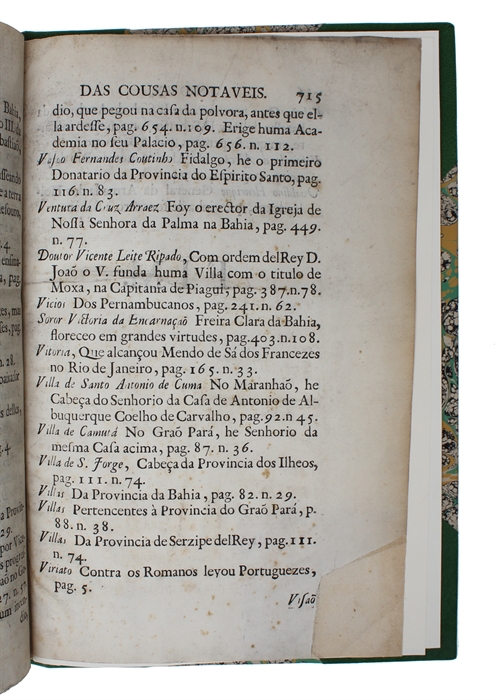 Bahia,
DAS COUSAS NOTAVEIS. 715
dio, que pegou na casa da polvora, antes que el-
la ardesse, pag. 654. n. 109. Erige huma Aca-
demia no seu Palacio, pag. 656. n. 112.
Vasco Fernandes Coutinho Fidalgo, he o primeiro
Donatario da Provincia do Espirito Santo, pag.
116. n. 83.
Ventura da Cruz Arraez Foy o erector da Igreja de
Nossa Senhora da Palma na Bahia, pag. 449.
n. 77.
Doutor Vicente Leite Ripado, Com ordem delRey D.
Joaõ o V. funda huma Villa com o titulo de
Moxa, na Capitania de Piagui, pag. 387. n. 78.
Vicios Dos Pernambucanos, pag. 241. n. 62.
Soror Victoria da Encarnaçaõ Freira Clara da Bahia,
floreceo em grandes virtudes, pag. 403. n. 108.
Vitoria, Que alcançou Mendo de Sá dos Francezes
no Rio de Janeiro, pag. 165. n. 33.
Villa de Santo Antonio de Cuma No Maranhaõ, he
Cabeça do Senhorio da Casa de Antonio de Al-
buquerque Coelho de Carvalho, pag. 92. n 45.
Villa de Camutá No Graõ Pará, he Senhorio da
mesma Casa acima, pag. 87. n. 36.
Villa de S. Jorge, Cabeça da Provincia dos Ilheos,
pag. 111. n. 74.
Villas Da Provincia da Bahia, pag. 82. n. 29.
Villas Pertencentes à Provincia do Graõ Pará, p.
88. n. 38.
Villas Da Provincia de Serzipe delRey, pag. 111.
n. 74.
Viriato Contra os Romanos levou Portuguezes,
pag. 5.
Visaõ